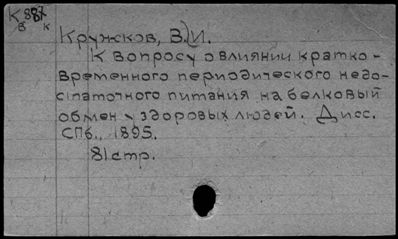 К 887
в к
Кружков, В. И.
К вопросу о влиянии кратко-
временного периодического недо-
статочного питания на белковый
обмен у здоровых людей. Дисс.
СПб., 1895.
81 стр.